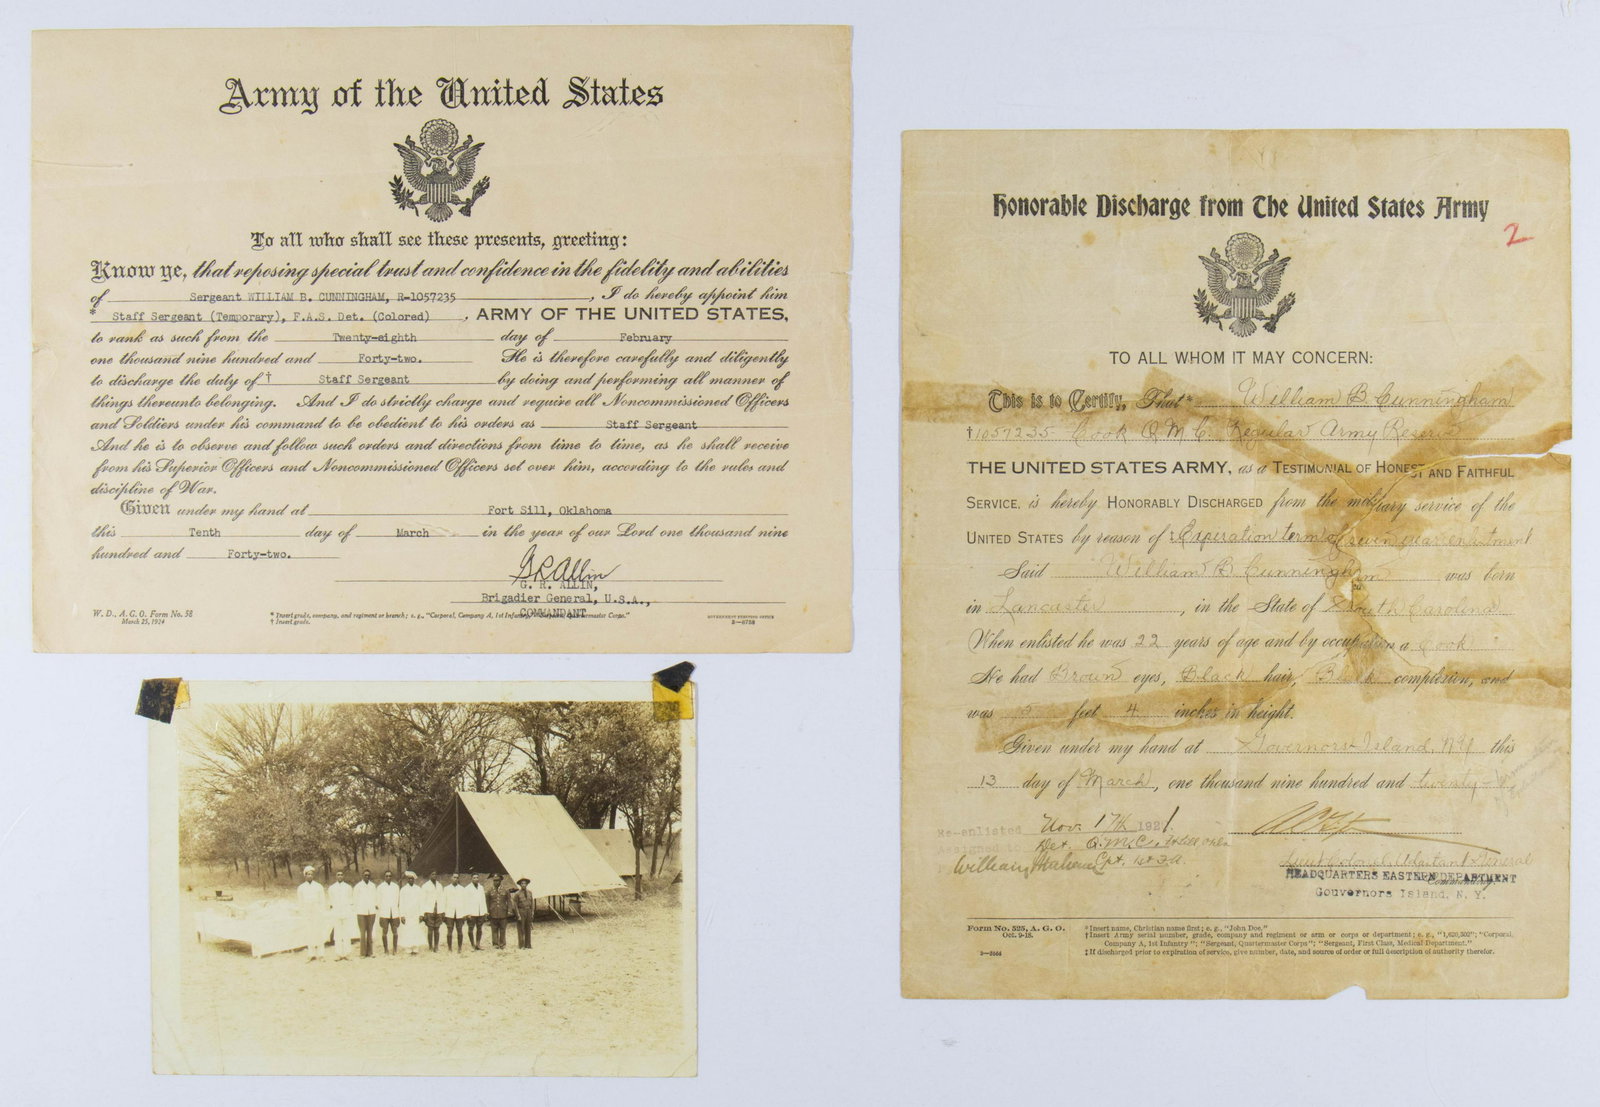 Army of the United States
To all who shall see these presents, greeting:
Know ye, that reposing special trust and confidence in the fidelity and abilities
of Sergeant WILLIAM B. CUNNINGHAM, R-1057235, I do hereby appoint him
* Staff Sergeant (Temporary), F.A.S. Det. (Colored), ARMY OF THE UNITED STATES,
to rank as such from the Twenty-eighth day of February
one thousand nine hundred and Forty-two. He is therefore carefully and diligently
to discharge the duty of † Staff Sergeant by doing and performing all manner of
things thereunto belonging. And I do strictly charge and require all Noncommissioned Officers
and Soldiers under his command to be obedient to his orders as Staff Sergeant
And he is to observe and follow such orders and directions from time to time, as he shall receive
from his Superior Officers and Noncommissioned Officers set over him, according to the rules and
discipline of War.
Given under my hand at Fort Sill, Oklahoma
this Tenth day of March in the year of our Lord one thousand nine
hundred and Forty-two.
G R Allin
G. R. ALLIN,
Brigadier General, U.S.A.,
COMMANDANT
W. D., A. G. O. Form No. 58
March 25, 1924
* Insert grade, company, and regiment or branch; e. g., "Corporal, Company A, 1st Infantry," "Sergeant, Quartermaster Corps."
† Insert grade.
GOVERNMENT PRINTING OFFICE
3—6758
Honorable Discharge from The United States Army
2
TO ALL WHOM IT MAY CONCERN:
This is to Certify, That* William B. Cunningham
†1057235 Cook Q.M.C. Regular Army Reserve
THE UNITED STATES ARMY, as a TESTIMONIAL OF HONEST AND FAITHFUL
SERVICE, is hereby HONORABLY DISCHARGED from the military service of the
UNITED STATES by reason of ‡ Expiration term of
Said William B. Cunningham was born
in Lancaster, in the State of South Carolina
When enlisted he was 22 years of age and by occupation a Cook
He had Brown eyes, Black hair, Black complexion, and
was 5 feet 4 inches in height.
Given under my hand at Governors Island, N.Y. this
13 day of March, one thousand nine hundred and twenty-
Re-enlisted Nov. 17th 1921.
Assigned to Det. Q.M.C.
William Capt.
Lieut Colonel Adjutant General
HEADQUARTERS EASTERN DEPARTMENT
Commanding.
Gouvernors Island, N. Y.
Form No. 525, A. G. O.
Oct. 9-18.
3—3164
* Insert name, Christian name first; e. g., "John Doe."
† Insert Army serial number, grade, company and regiment or arm or corps or department; e. g., "1,620,302"; "Corporal,
Company A, 1st Infantry"; "Sergeant, Quartermaster Corps"; "Sergeant, First Class, Medical Department."
‡ If discharged prior to expiration of service, give number, date, and source of order or full description of authority therefor.